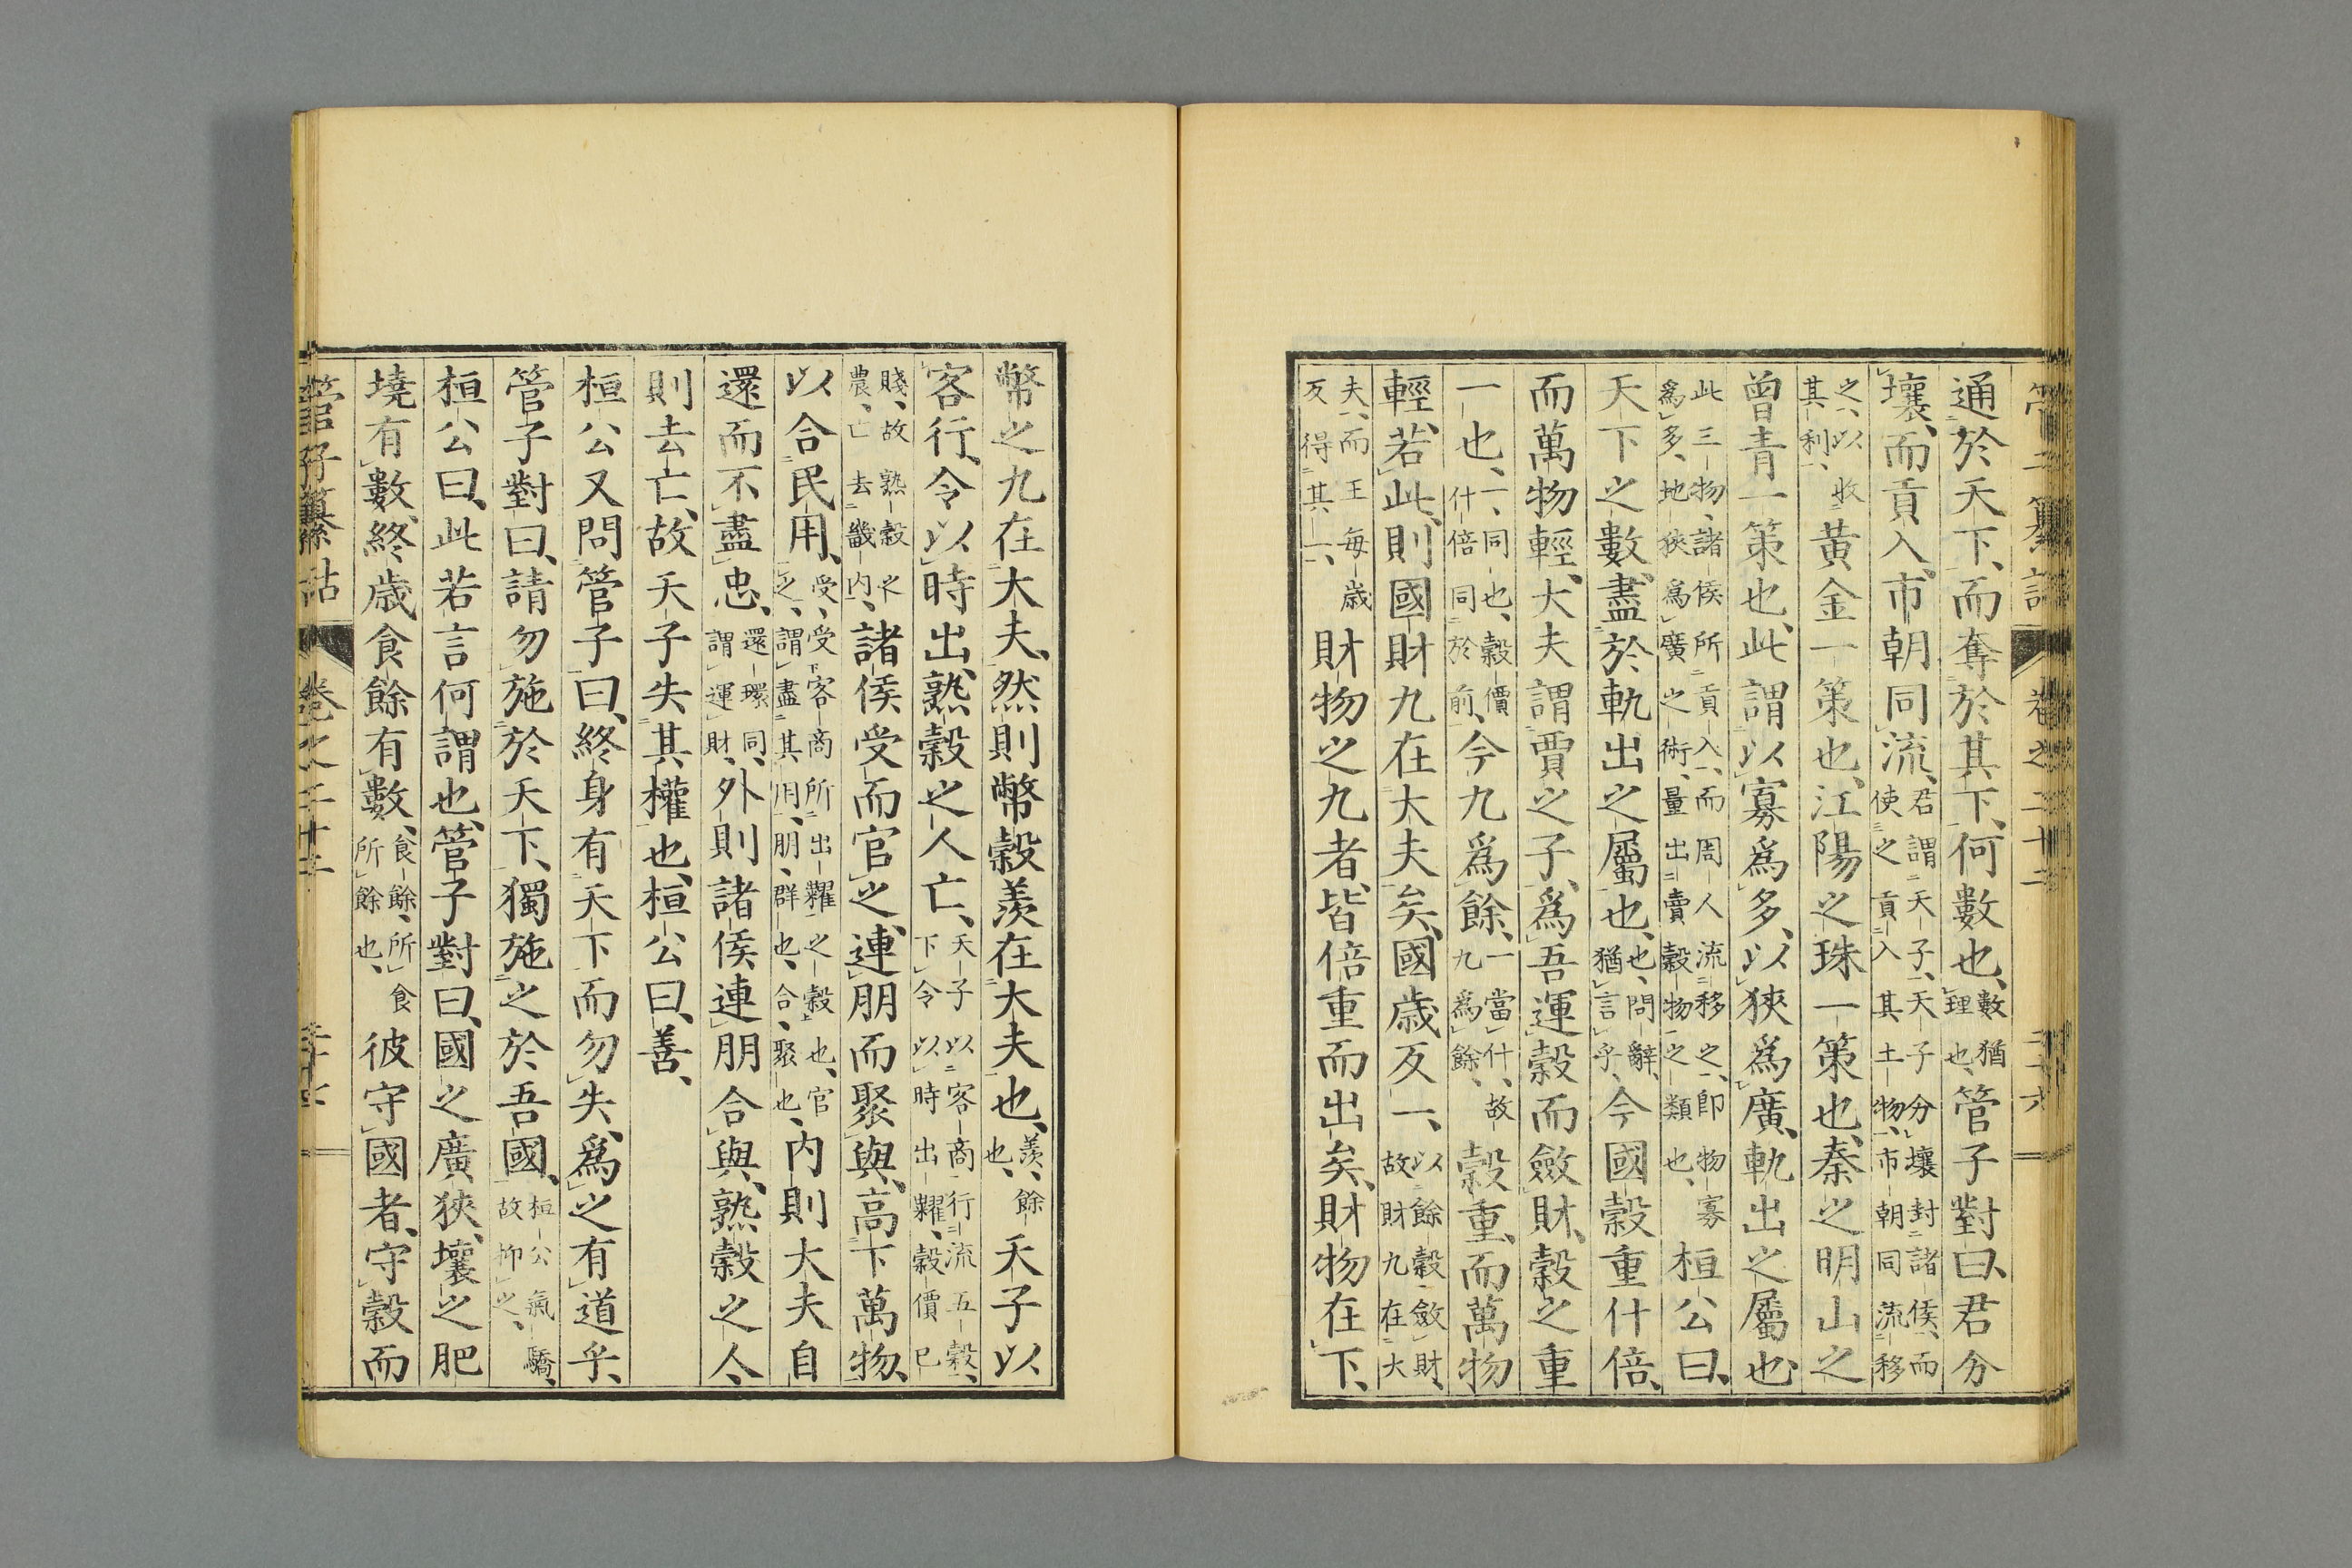 通於天下、而奪於其下、何數也、數猶理也、管子對曰、君分
壤、而貢入、市朝同流、君謂天子、天子分壤封諸侯、而使之貢入其土物、市朝同流移
之、以收其利、黃金一策也、江陽之珠一策也、秦之明山之
曾青一策也、此謂以寡爲多、以狹爲廣、軌出之屬也、
此三物、諸侯所貢入、而周人流移之、即物寡爲多、地狹爲廣之術、量出賣穀物之類也、桓公曰、
天下之數、盡於軌出之屬也、也、問辭、猶言乎、今國穀重什倍、
而萬物輕、大夫謂賈之子、爲吾運穀而斂財、穀之重
一也、一、同也、穀價什倍同於前、今九爲餘、一當什、故九爲餘、穀重、而萬物
輕、若此、則國財九在大夫矣、國歲反一、以餘穀斂財、故財九在大
夫、而王每歲反得其一、財物之九者、皆倍重而出矣、財物在下、
幣之九在大夫、然則幣穀羨在大夫也、羨、餘也、天子以
客行、令以時出、熟穀之人亡、天子以客商行流五穀、下令以時出糶、穀價已
賤、故熟穀之農、亡去畿內、諸侯受而官之、連朋而聚與、高下萬物、
以合民用、受、受客商所出糶之穀也、官之、謂盡其用、朋、群也、合、聚也、內則大夫自
還而不盡忠、還環同、謂運財、外則諸侯連朋合與、熟穀之人、
則去亡、故天子失其權也、桓公曰、善、
桓公又問管子曰、終身有天下而勿失、爲之有道乎、
管子對曰、請勿施於天下、獨施之於吾國、桓公氣驕、故抑之、
桓公曰、此若言何謂也、管子對曰、國之廣狹、壤之肥
墝有數、終歲食餘有數、食餘、所食所餘也、彼守國者、守穀而
管子纂詁 卷之二十二